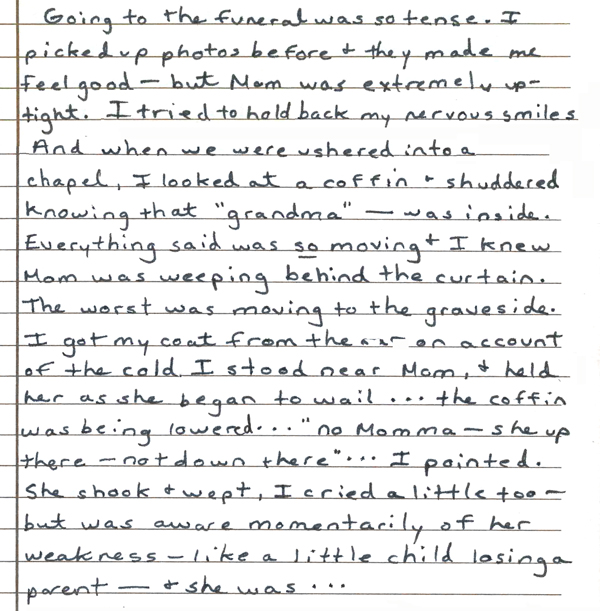 Going to the funeral was so tense. I
picked up photos before & they made me
feel good — but Mom was extremely up-
tight. I tried to hold back my nervous smiles
And when we were ushered into a
chapel, I looked at a coffin & shuddered
knowing that "grandma" — was inside.
Everything said was so moving & I knew
Mom was weeping behind the curtain.
The worst was moving to the graveside.
I got my coat from the car on account
of the cold. I stood near Mom, & held
her as she began to wail ... the coffin
was being lowered... "no Momma — she up
there — not down there"... I pointed.
She shook & wept, I cried a little too —
but was aware momentarily of her
weakness — like a little child losing a
parent — & she was ...